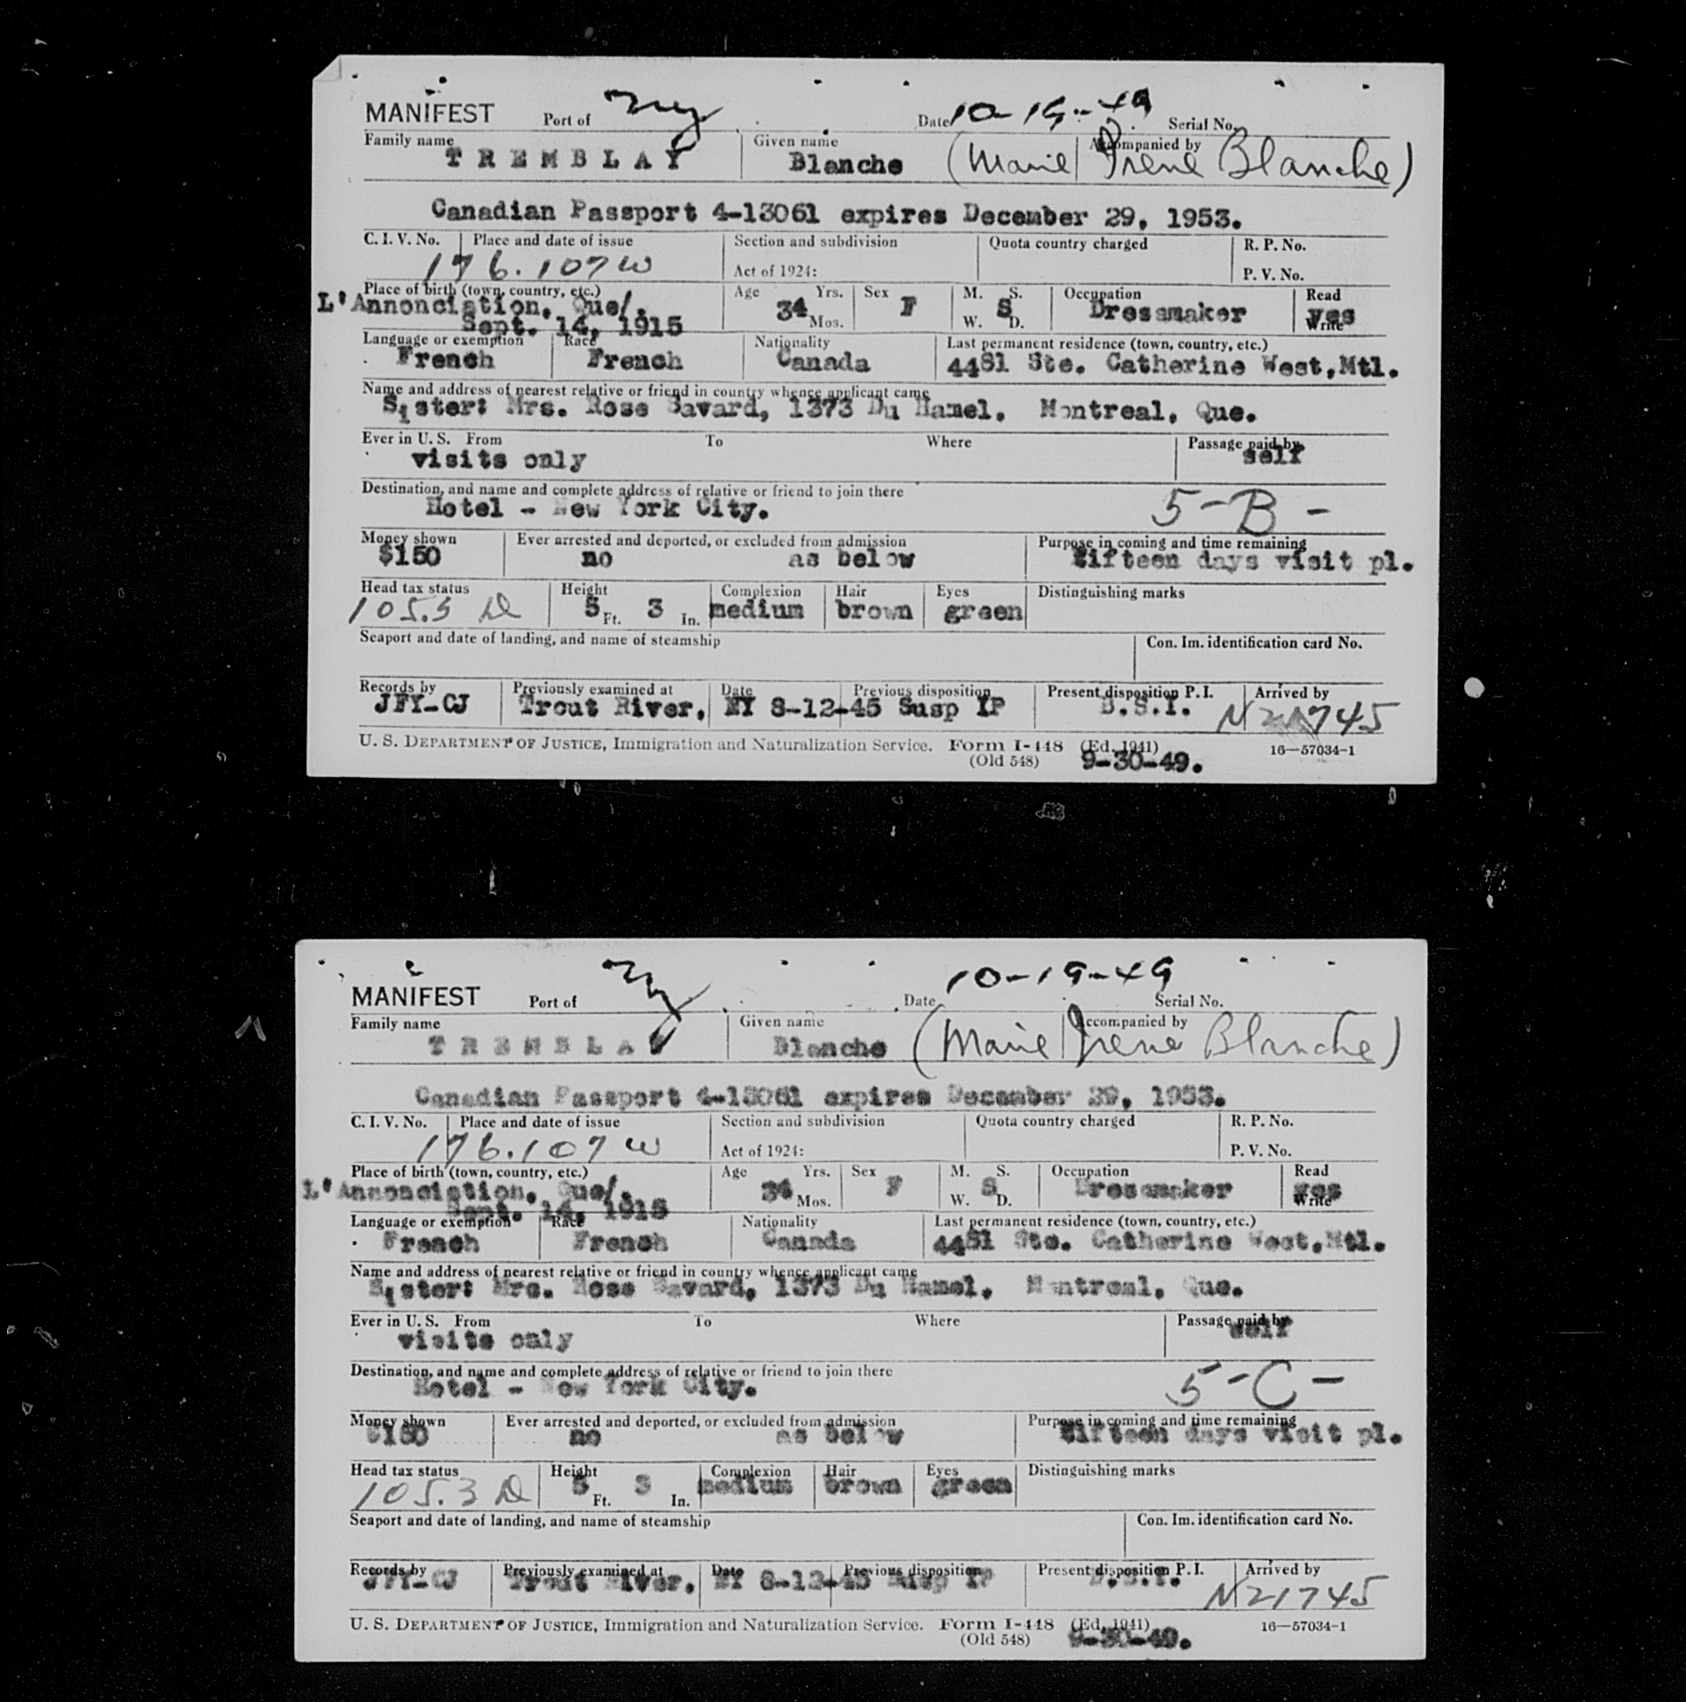 MANIFEST Port of NY Date 10-19-49 Serial No.
Family name TREMBLAY Given name Blanche Accompanied by (Marie Irene Blanche)
Canadian Passport 4-13061 expires December 29, 1953.
C. I. V. No. Place and date of issue Section and subdivision Quota country charged R. P. No.
176.107 W Act of 1924: P. V. No.
Place of birth (town, country, etc.) Age Yrs. Sex M. S. Occupation Read
L'Annonciation, Que/. 34 Mos. F W. S D. Dressmaker yes Write
Sept. 14, 1915
Language or exemption Race Nationality Last permanent residence (town, country, etc.)
French French Canada 4481 Ste. Catherine West, Mtl.
Name and address of nearest relative or friend in country whence applicant came
Sister: Mrs. Rose Savard, 1373 Du Hamel, Montreal, Que.
Ever in U. S. From To Where Passage paid by
visits only self
Destination, and name and complete address of relative or friend to join there
Hotel - New York City. 5-B-
Money shown Ever arrested and deported, or excluded from admission Purpose in coming and time remaining
$150 no as below fifteen days visit pl.
Head tax status Height Complexion Hair Eyes Distinguishing marks
105.3 D 5 Ft. 3 In. medium brown green
Seaport and date of landing, and name of steamship Con. Im. identification card No.
Records by Previously examined at Date Previous disposition Present disposition P. I. Arrived by
JFY-CJ Trout River, NY 8-12-45 Susp IP B.S.I. N21745
U. S. DEPARTMENT OF JUSTICE, Immigration and Naturalization Service. Form I-448 (Ed. 1941) 16—57034-1
(Old 548) 9-30-49.
MANIFEST Port of NY Date 10-19-49 Serial No.
Family name TREMBLAY Given name Blanche Accompanied by (Marie Irene Blanche)
Canadian Passport 4-13061 expires December 29, 1953.
C. I. V. No. Place and date of issue Section and subdivision Quota country charged R. P. No.
176.107 W Act of 1924: P. V. No.
Place of birth (town, country, etc.) Age Yrs. Sex M. S. Occupation Read
L'Annonciation, Que/. 34 Mos. F W. S D. Dressmaker yes Write
Sept. 14, 1915
Language or exemption Race Nationality Last permanent residence (town, country, etc.)
French French Canada 4481 Ste. Catherine West, Mtl.
Name and address of nearest relative or friend in country whence applicant came
Sister: Mrs. Rose Savard, 1373 Du Hamel, Montreal, Que.
Ever in U. S. From To Where Passage paid by
visits only self
Destination, and name and complete address of relative or friend to join there
Hotel - New York City. 5-C-
Money shown Ever arrested and deported, or excluded from admission Purpose in coming and time remaining
$150 no as below fifteen days visit pl.
Head tax status Height Complexion Hair Eyes Distinguishing marks
105.3 D 5 Ft. 3 In. medium brown green
Seaport and date of landing, and name of steamship Con. Im. identification card No.
Records by Previously examined at Date Previous disposition Present disposition P. I. Arrived by
JFY-CJ Trout River, NY 8-12-45 Susp IP B.S.I. N21745
U. S. DEPARTMENT OF JUSTICE, Immigration and Naturalization Service. Form I-448 (Ed. 1941) 16—57034-1
(Old 548) 9-30-49.